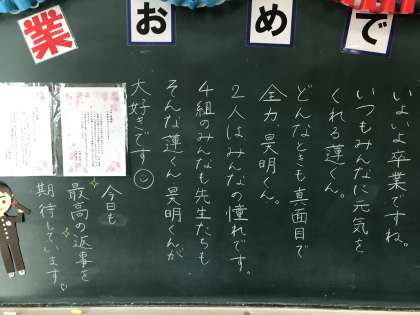 業
お
め
で
いよいよ卒業ですね。
いつもみんなに元気を
くれる蓮くん。
どんなときも真面目で
全力 昊明くん。
2人はみんなの憧れです。
4組のみんなも先生たちも
そんな蓮くん 昊明くんが
大好きです☺
今日も
最高の返事を
期待しています。